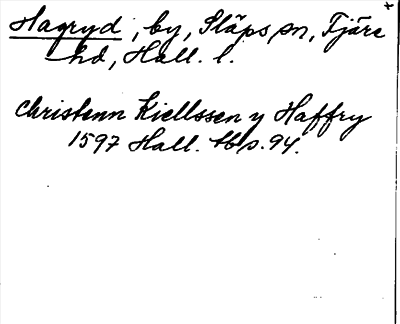 Hagryd, by, Släps sn, Fjäre
hd, Hall. l.
Christenn Kiellssen y Haffry
1597 Hall. tb s. 94.